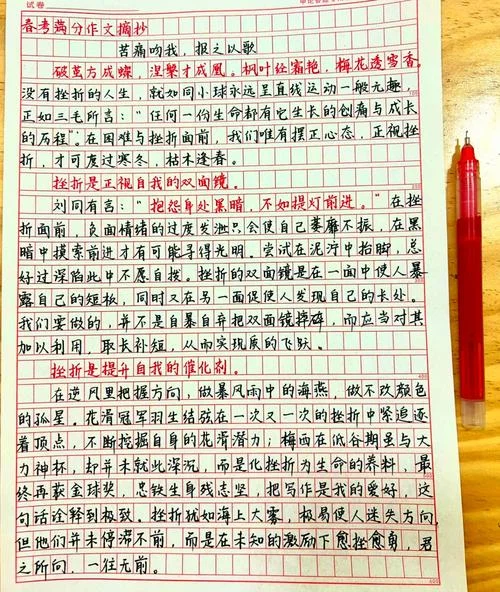 试卷
春考满分作文摘抄
苦痛吻我，报之以歌
破茧方成蝶，涅槃才成凰。枫叶经霜艳，梅花透雪香。
没有挫折的人生，就如同小球永远呈直线运动一般无趣，
正如三毛所言：“任何一份生命都有它生长的创痛与成长
的历程”。在困难与挫折面前，我们唯有摆正心态，正视挫
折，才可度过寒冬，枯木逢春。
挫折是正视自我的双面镜。
刘同有言：“抱怨身处黑暗，不如提灯前进。”在挫
折面前，负面情绪的过度发泄只会使自己萎靡不振，在黑
暗中摸索前进才有可能寻得光明。尝试在泥泞中抬脚，总
好过深陷此中不愿自拔。挫折的双面镜是在一面中使人暴
露自己的短板，同时又在另一面促使人发现自己的长处。
我们要做的，并不是自暴自弃把双面镜摔碎，而应当对其
加以利用，取长补短，从而实现质的飞跃。
挫折是提升自我的催化剂。
在逆风里把握方向，做暴风雨中的海燕，做不改颜色
的孤星。花滑冠军羽生结弦在一次又一次的挫折中紧追逐
着顶点，不断挖掘自身的花滑潜力；梅西在低谷期虽与大
力神杯，却并未就此深沉，而是化挫折为生命的养料，最
终再获金球奖，史铁生身残志坚，把写作是我的爱好，这
句话诠释到极致。挫折犹如海上大雾，极易使人迷失方向，
但他们并未停滞不前，而是在未知的激励下愈挫愈勇，君
之所向，一往无前。
400
600